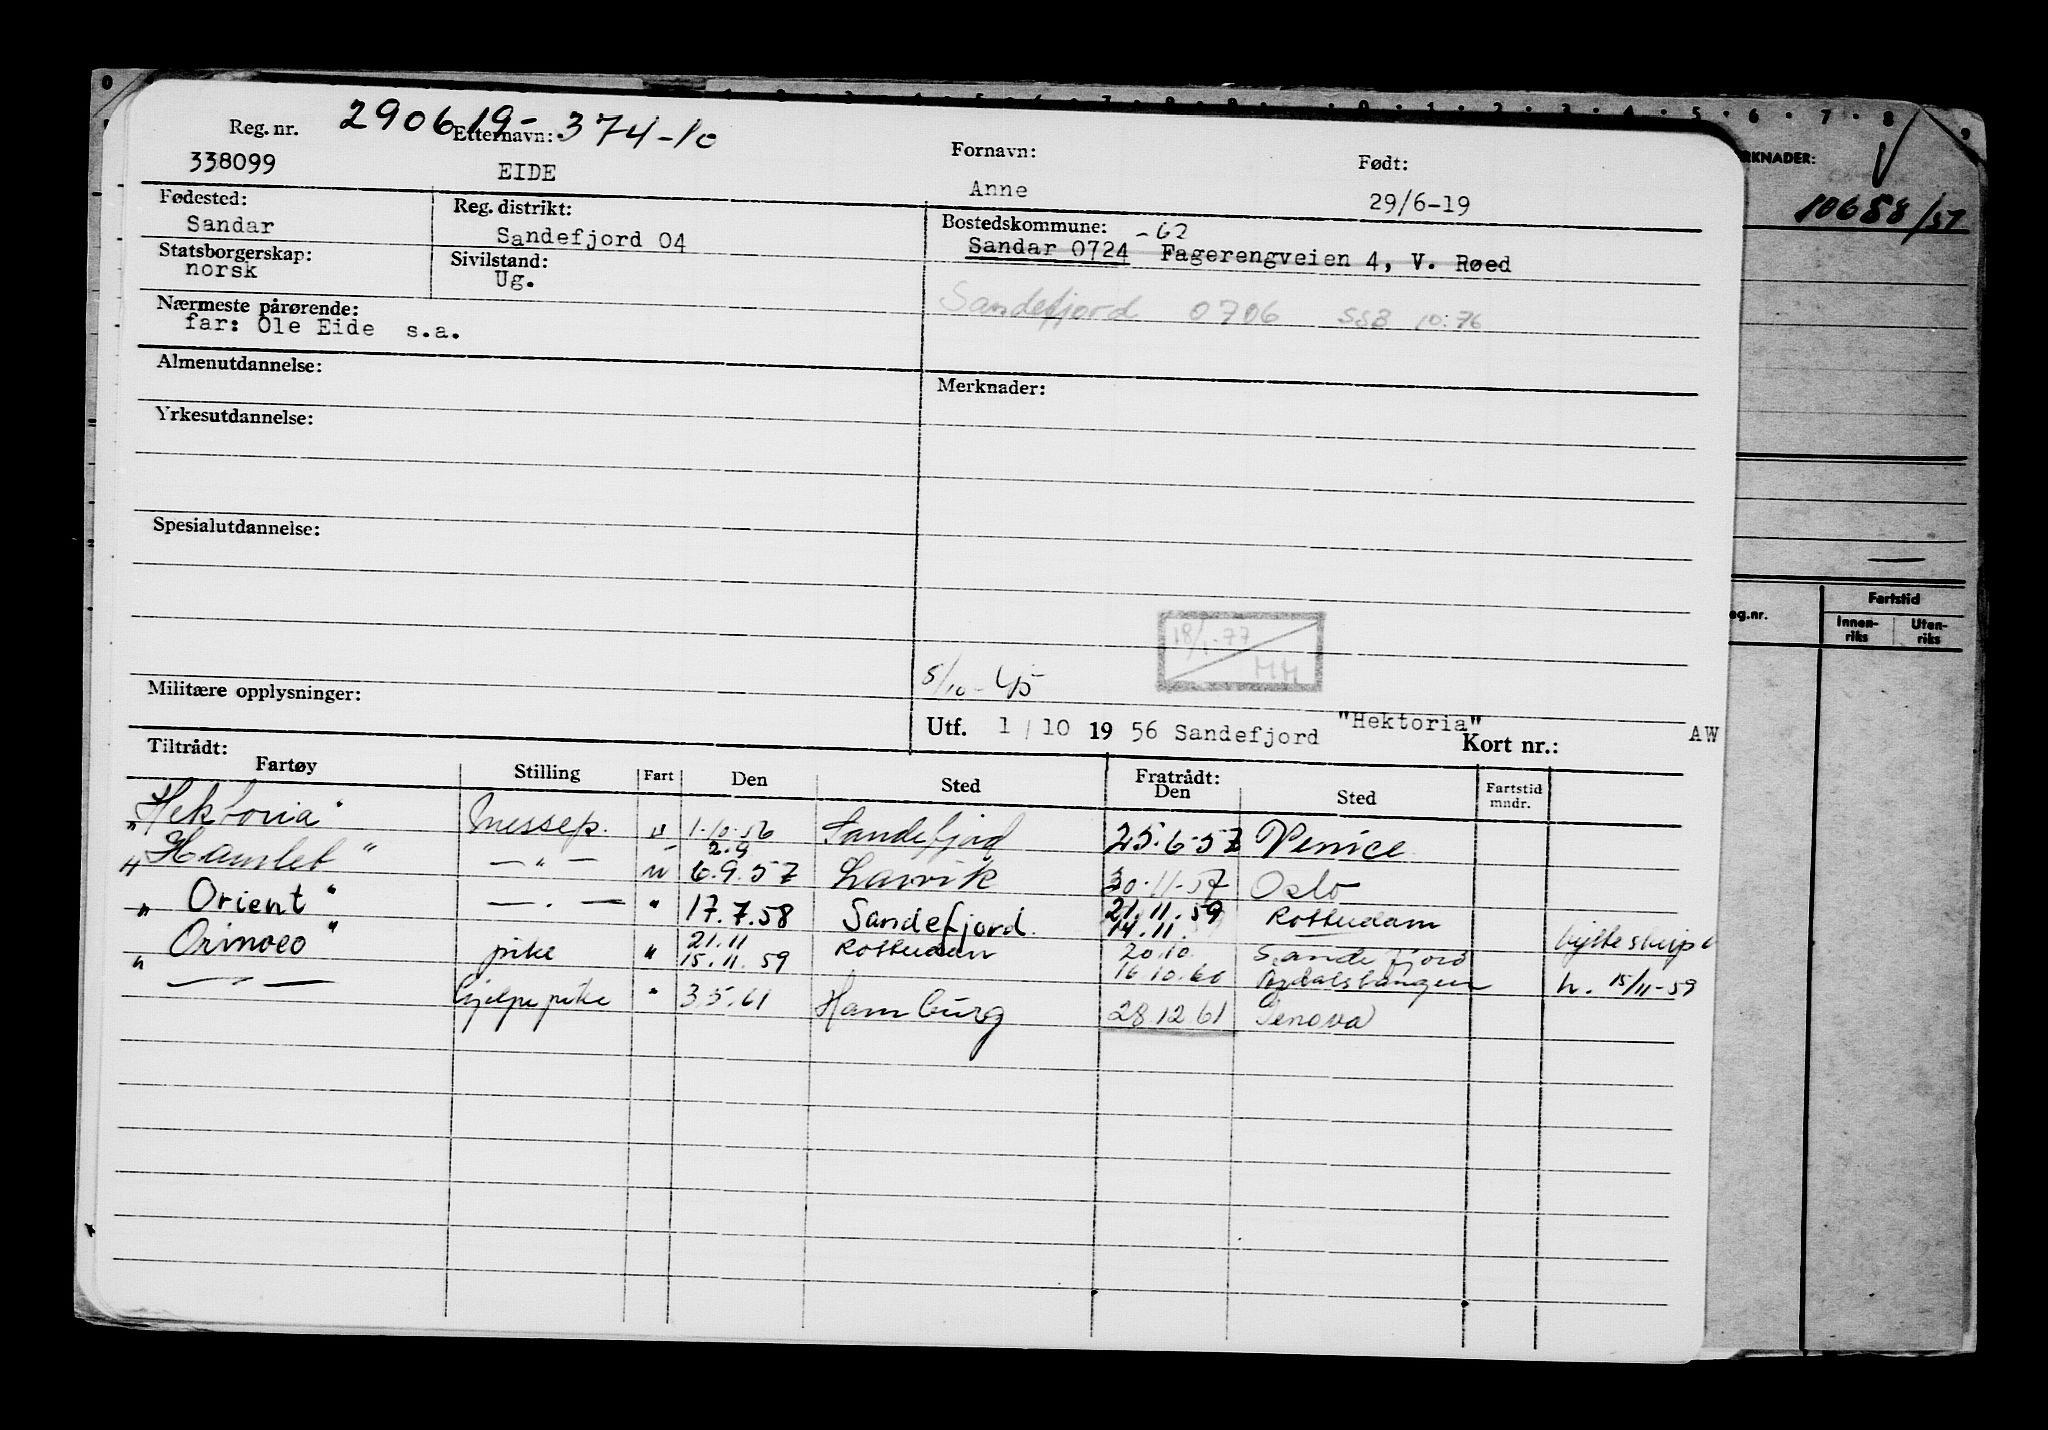 290619-374-10
Reg. nr. Etternavn: Fornavn: Født:
338099 EIDE Anne 29/6-19
Fødested: Reg. distrikt: Bostedskommune: -62
Sandar Sandefjord 04 Sandar 0724 Fagerengveien 4, V. Røed
Statsborgerskap: Sivilstand:
norsk Ug.
Sandefjord 0706 SSB 10.76
Nærmeste pårørende:
far: Ole Eide s.a.
Almenutdannelse: Merknader:
Yrkesutdannelse:
Spesialutdannelse:
18/1-77
MM
5/10-45
Militære opplysninger:
Utf. 1/10 1956 Sandefjord "Hektoria" Kort nr.: AW
Tiltrådt: Fratrådt:
Fartøy Stilling Fart Den Sted Den Sted Fartstid mndr.
"Hektoria" Messep. u 1.10.56 Sandefjord 25.6.57 Venice
2.9
"Hamlet" — " — u 6.9.57 Larvik 30.11.57 Oslo
"Orient" — . — " 17.7.58 Sandefjord. 21.11.59 Rotterdam
14.11.
21.11 20.10.
"Orinoco" pike " 15.11.59 Rotterdam 16.10.60 Sandefjord
h. 15/11-59
" — " — hjelpepike " 3.5.61 Hamburg 28.12.61 Genova
MERKNADER:
10658/57
Reg.nr. Fartstid
Innen-
riks Uten-
riks